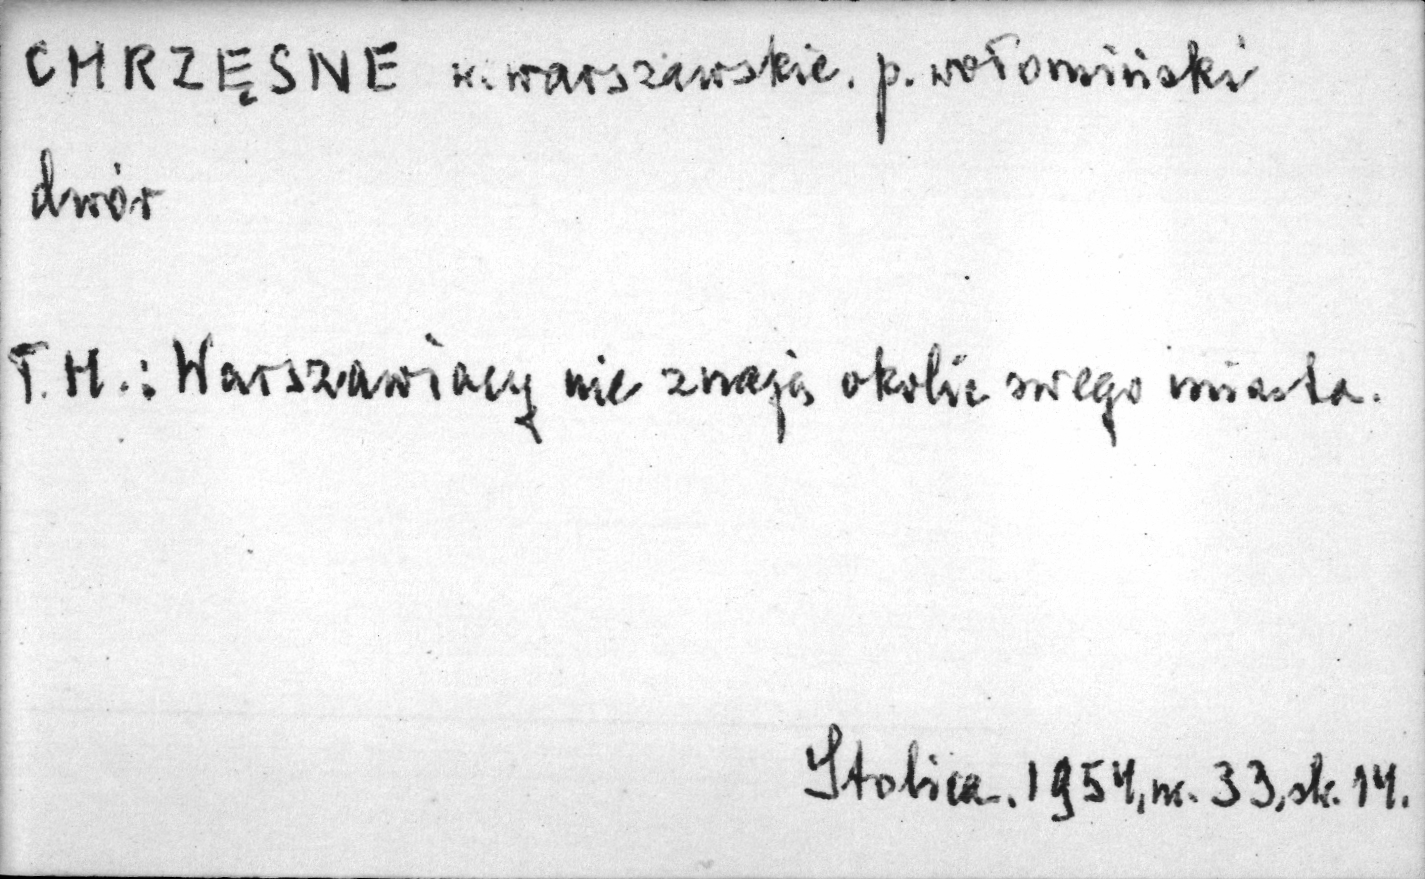 CHRZĘSNE w. warszawskie. p. wołomiński
dwór
T. H.: Warszawiacy nie znają okolic swego miasta.
Stolica. 1954, nr. 33, sk. 14.